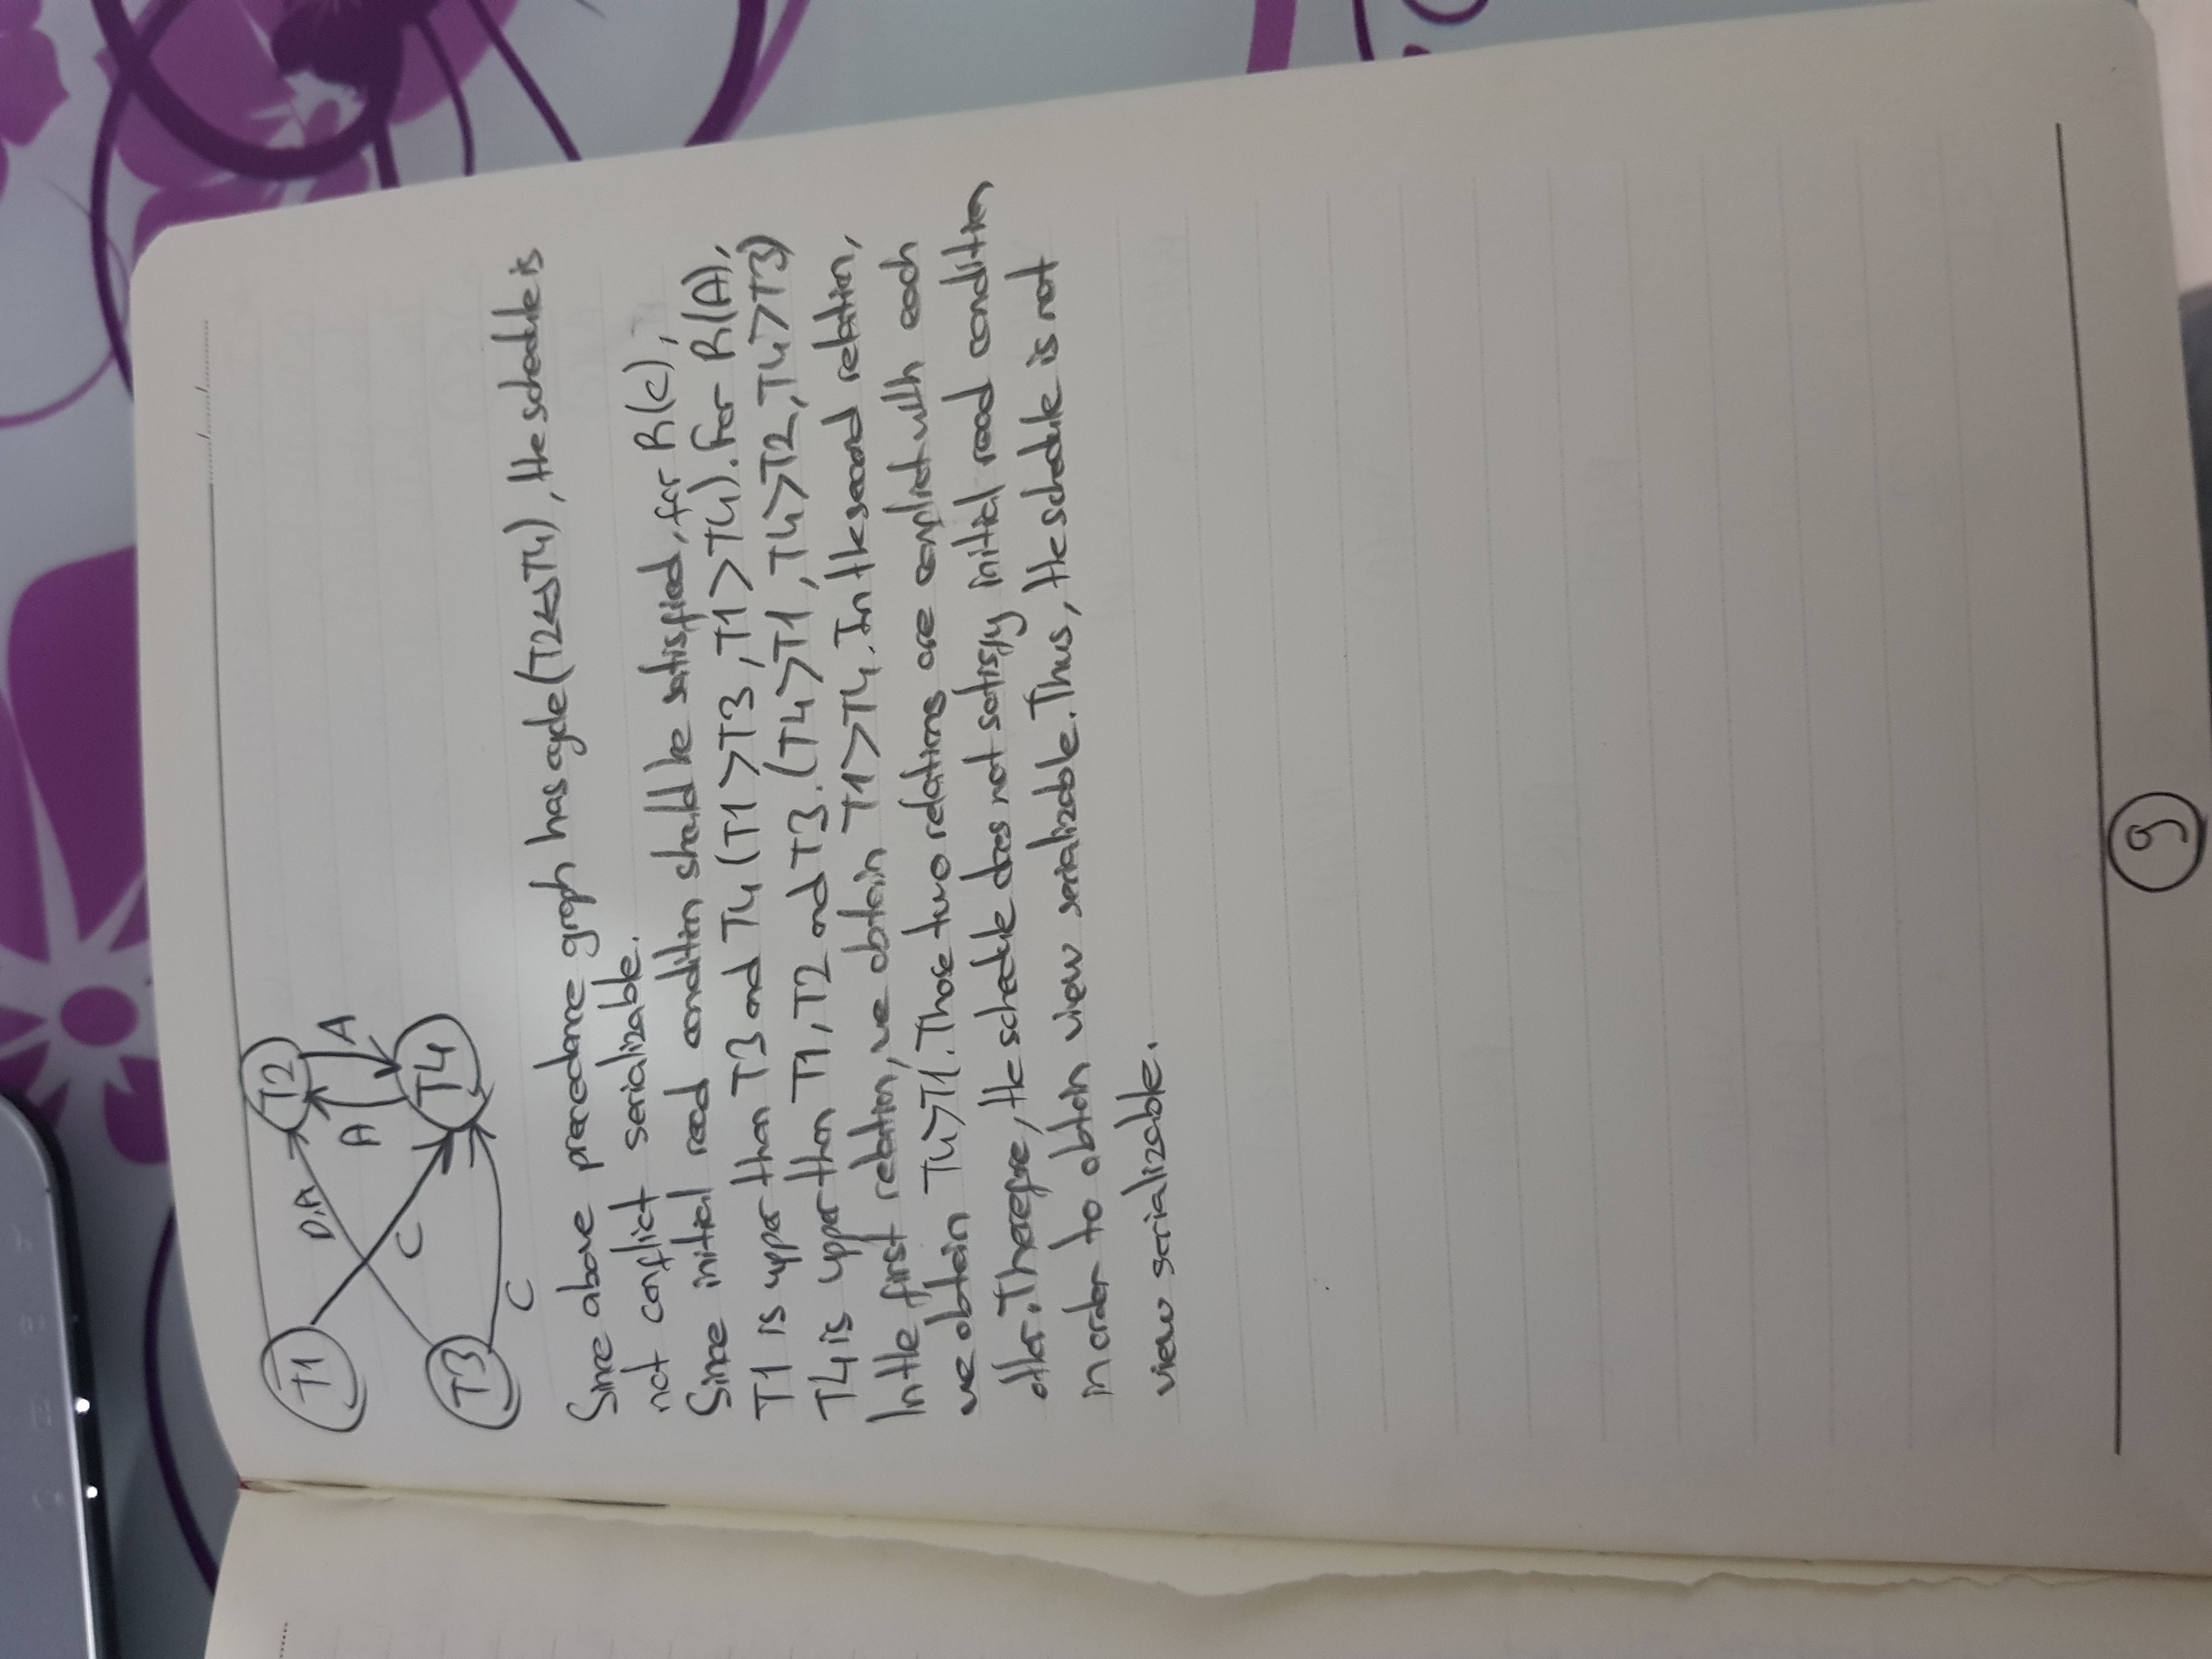 T1
T2
D,A
A
A
C
T4
T3
C
Since above precedence graph has cycle (T2↔T4), the schedule is
not conflict serializable.
Since initial read condition should be satisfied, for R(C),
T1 is upper than T3 and T4 (T1>T3, T1>T4). For R(A),
T4 is upper than T1, T2 and T3. (T4>T1, T4>T2, T4>T3)
In the first relation, we obtain T1>T4. In the second relation,
we obtain T4>T1. Those two relations are conflict with each
other. Therefore, the schedule does not satisfy initial read condition
in order to obtain view serializable. Thus, the schedule is not
view serializable.
9